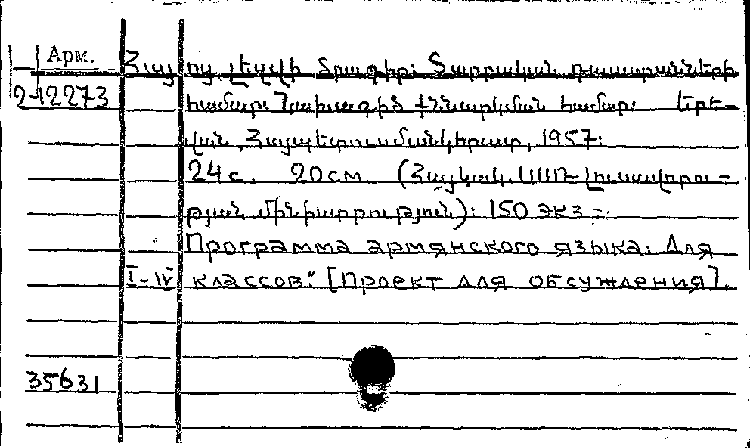 Арм.
Հայոց լեզվի ծրագիր: Տարրական դասարանների
2-12273 համար: Նախագիծ քննարկման համար: Երե-
վան, Հայպետուսմանկհրատ, 1957:
24 с. 20 см (Հայկակ. ՍՍՌ Լուսավորու-
թյան մինիստրություն): 150 экз =:
Программа армянского языка. Для
I-IV классов." [Проект для обсуждения].
35631